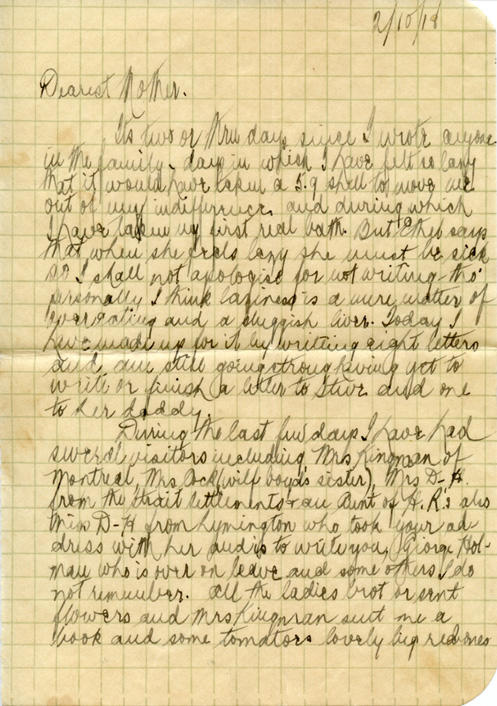 2/10/18
Dearest Mother.
Its two or three days since I wrote anyone
in the family – days in which I have felt so lazy
that it would have taken a 5.9 shell to move me
out of my indifference, and during which
I have taken my first real bath. But says
that when she feels lazy she must be sick
so I shall not apologise for not writing – tho'
personally I think laziness is a mere matter of
overeating and a sluggish liver. Today I
have made up for it by writing eight letters
and am still going strong having yet to
write or finish a letter to Steve and one
to her daddy.
During the last few days I have had
several visitors including Mrs Kingman of
Montreal, Mrs (Wilf Boyd's sister), Mrs D-H.
from the Strait Settlements – an Aunt of H.R.'s also
Miss D-H from Lymington who took your ad
dress with her and is to write you, George Hol-
man who is over on leave and some others I do
not remember. All the ladies brot or sent
flowers and Mrs Kingman sent me a
book and some tomatoes lovely big red ones